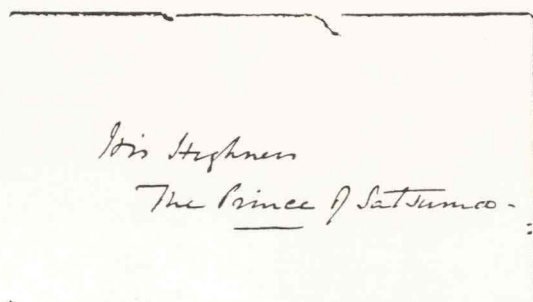 His Highness
The Prince of Satsuma.